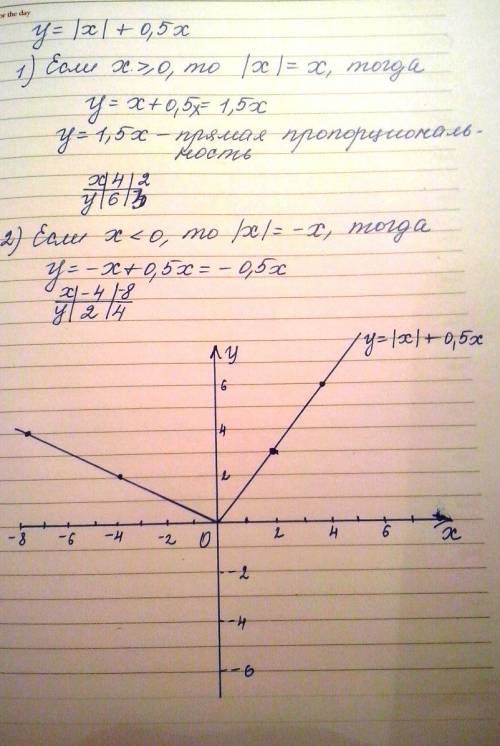 or the day
y = |x| + 0,5x
1) Если x ≥ 0, то |x| = x, тогда
y = x + 0,5x = 1,5x
y = 1,5x – прямая пропорциональ-
ность
x | 4 | 2
y | 6 | 3
2) Если x < 0, то |x| = -x, тогда
y = -x + 0,5x = -0,5x
x | -4 | -8
y | 2 | 4
y
y = |x| + 0,5x
6
4
2
-8 -6 -4 -2 0 2 4 6 x
-2
-4
-6